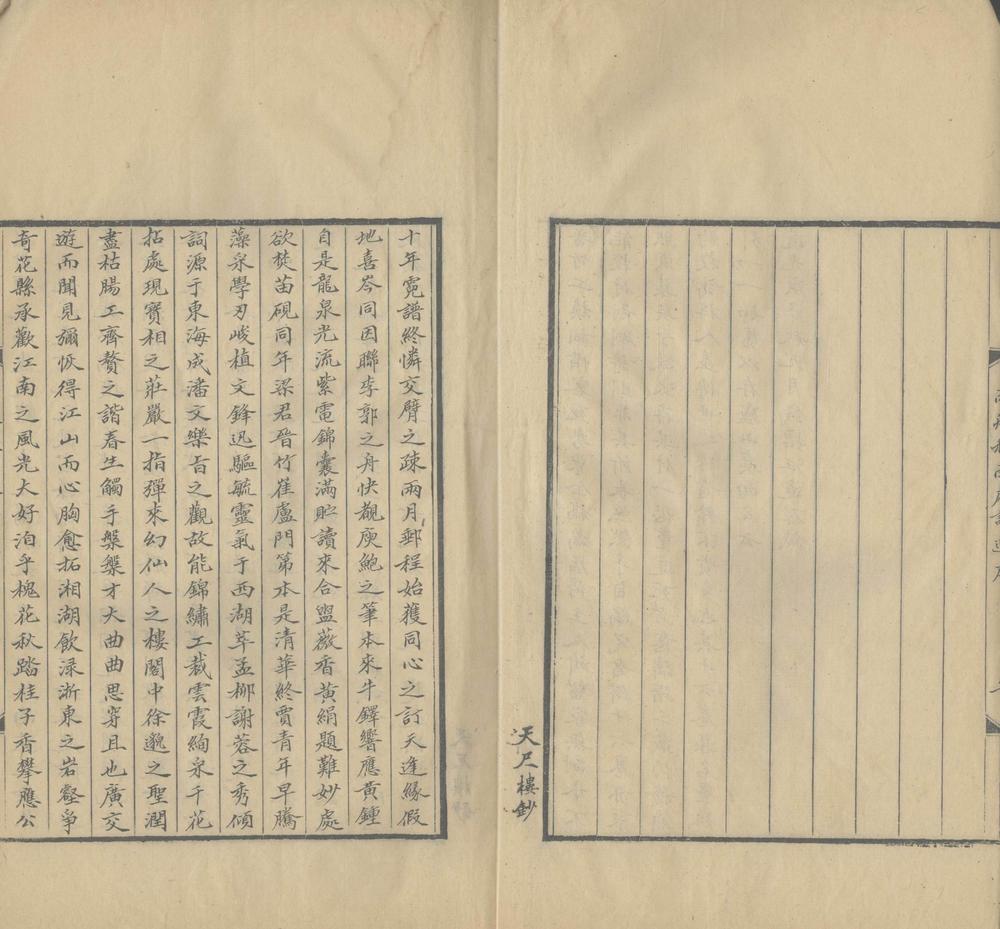 天尺樓鈔
十年霓譜終憐交臂之疎兩月郵程始獲同心之訂天逢緣假
地喜岑同因聯李郭之舟快覩庾鮑之筆本來牛鐸響應黃鍾
自是龍泉光流紫電錦囊滿貯讀來合盥薇香黃絹題難妙處
欲焚苗硯同年梁君晉竹崔盧門第本是清華終賈青年早騰
藻采學刃峻植文鋒迅驅毓靈氣于西湖萃孟柳謝蓉之秀傾
詞源于東海成潘文樂旨之觀故能錦繡工裁雲霞絢采千花
拓處現寶相之莊嚴一指彈來幻仙人之樓閣中徐邈之聖潤
盡枯腸工齊贅之諧春生觸手槃槃才大曲曲思穿且也廣交
遊而聞見彌恢得江山而心胸愈拓湘湖飲渌浙東之岩壑爭
奇花縣承歡江南之風光大好泊乎槐花秋踏桂子香攀應公